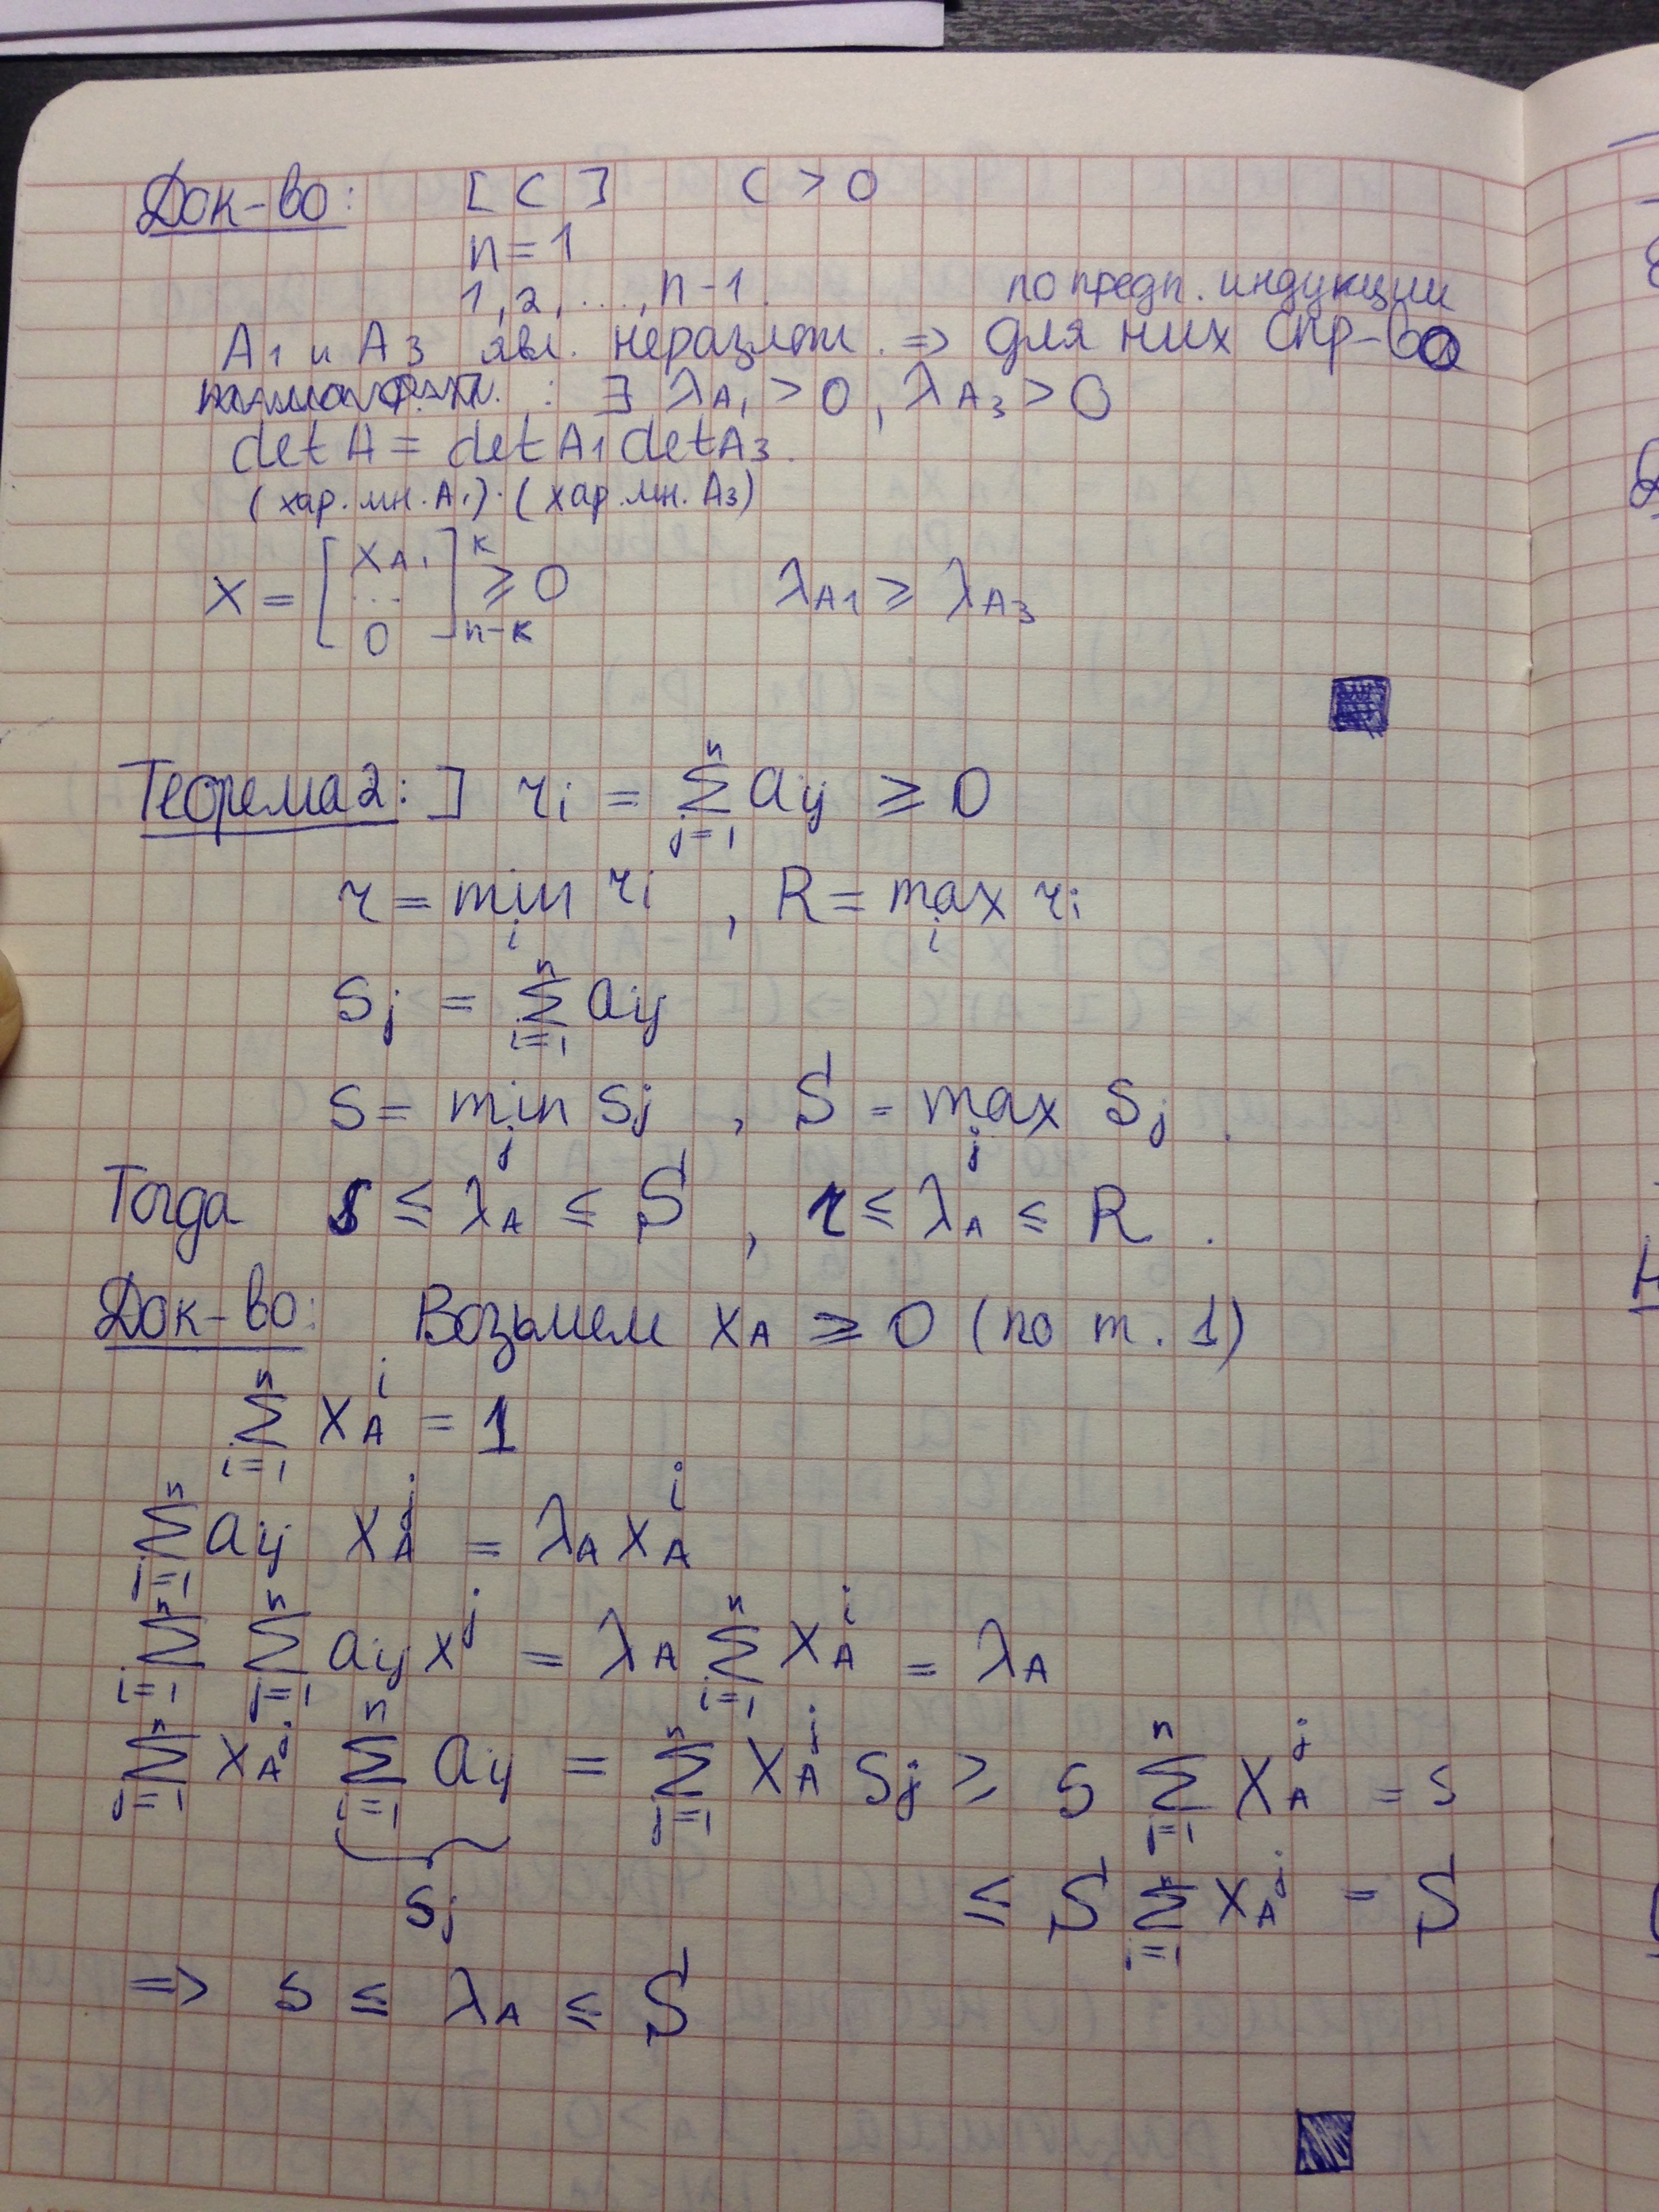 Док-во: [ C ] C > 0
n = 1
1, 2, ..., n-1. по предп. индукции
A₁ и A₃ явл. неразлож. ⇒ для них спр-во
: ∃ λ_A₁ > 0, λ_A₃ > 0
det A = det A₁ det A₃.
(хар. мн. A₁) · (хар. мн. A₃)
X = [ X_A₁ ... 0 ] ^k _n-k ≥ 0 λ_A1 ≥ λ_A3
Теорема 2: ] r_i = ∑_{j=1}^{n} a_ij ≥ 0
r = min_i r_i , R = max_i r_i
s_j = ∑_{i=1}^{n} a_ij
s = min_j s_j , S = max_j s_j .
Тогда s ≤ λ_A ≤ S , r ≤ λ_A ≤ R .
Док-во: Возьмем x_A ≥ 0 (по т. 1)
∑_{i=1}^{n} x_A^i = 1
∑_{j=1}^{n} a_ij x_A^j = λ_A x_A^i
∑_{i=1}^{n} ∑_{j=1}^{n} a_ij x^j = λ_A ∑_{i=1}^{n} x_A^i = λ_A
∑_{j=1}^{n} x_A^j ∑_{i=1}^{n} a_ij = ∑_{j=1}^{n} x_A^j s_j ≥ s ∑_{j=1}^{n} x_A^j = s
s_j ≤ S ∑_{j=1}^{n} x_A^j = S
⇒ s ≤ λ_A ≤ S